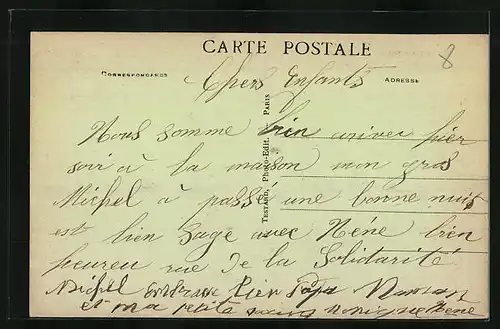 8
CARTE POSTALE
CORRESPONDANCE
ADRESSE
TESTARD, Photo-Edit. PARIS
Chers Enfants
Nous somme bien ariver hier
soir à la maison mon gros
Michel à passé une bonne nuis
est bien sage avec Néné bien
heureu rue de la Solidarité
Michel embrasse bien Papa Maman
et ma petite